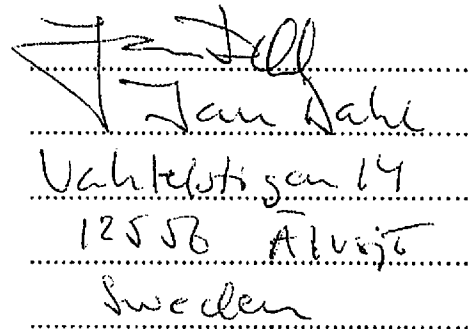 Jan Dahl
Jan Dahl
Vaktelstigen 14
12556 Älvsjö
Sweden